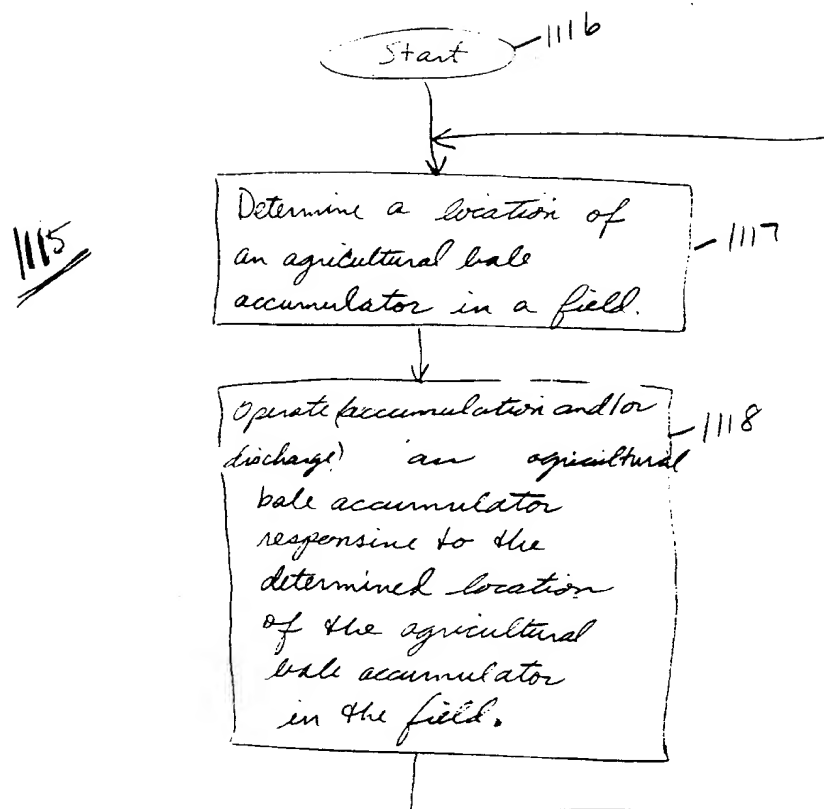 Start
1116
1115
Determine a location of
an agricultural bale
accumulator in a field.
1117
Operate (accumulation and/or
discharge) an agricultural
bale accumulator
responsive to the
determined location
of the agricultural
bale accumulator
in the field.
1118